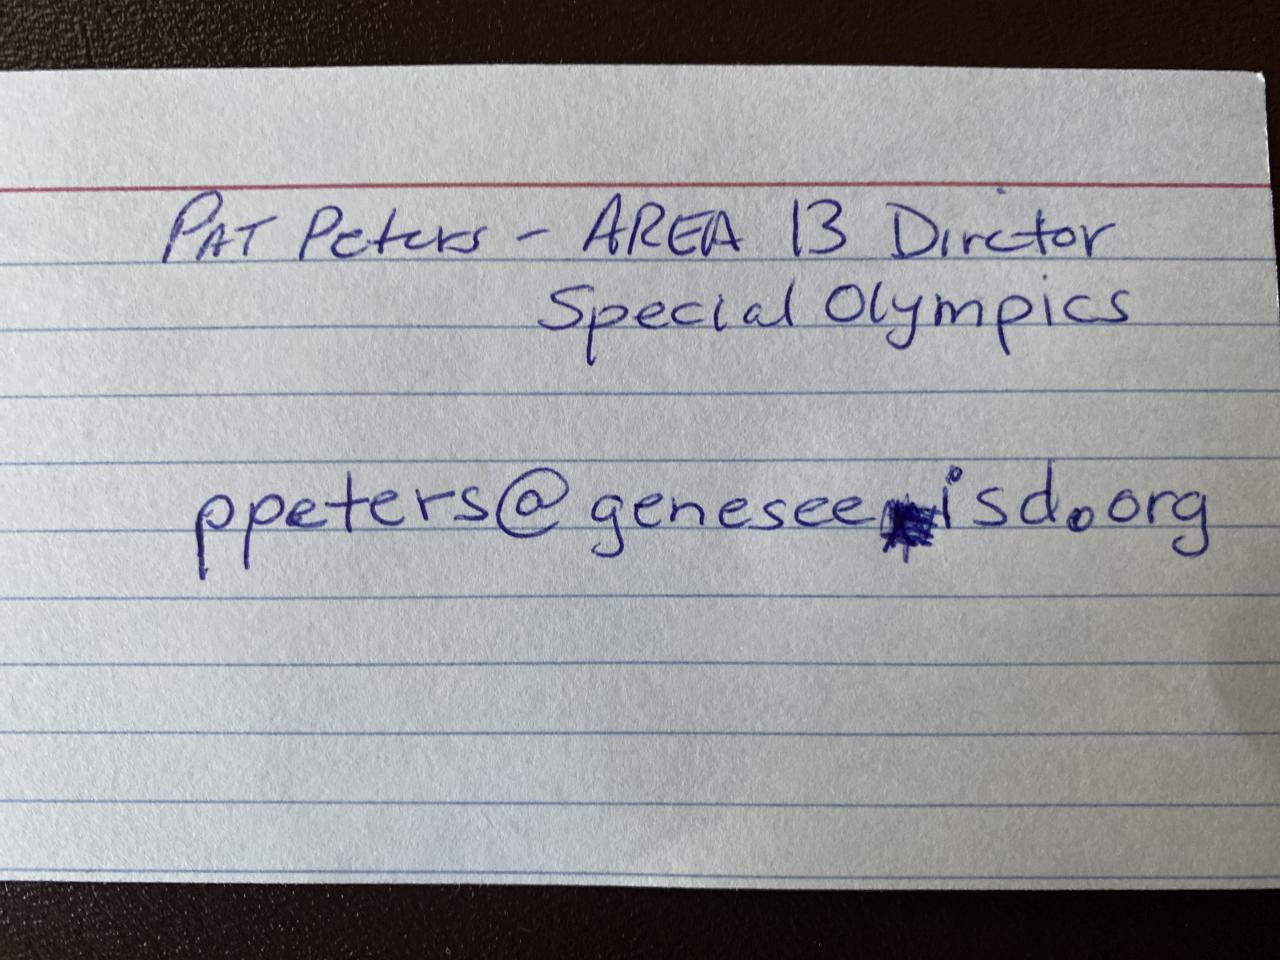 PAT Peters - AREA 13 Director
Special Olympics
ppeters@geneseeisd.org